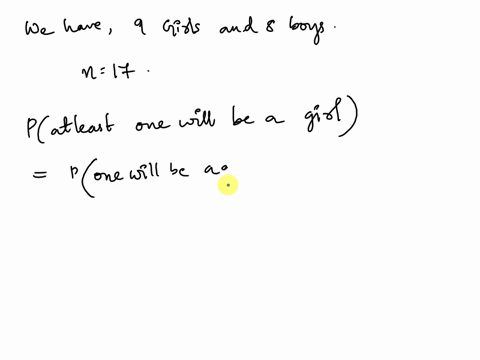 We have, 9 Girls and 8 boys.
n=17.
P(atleast one will be a girl)
= P(one will be a